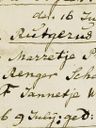 den 16 Ju
Rutgerus
Marretje
Renger Sche
Jannetje W
6 9 July: ged: